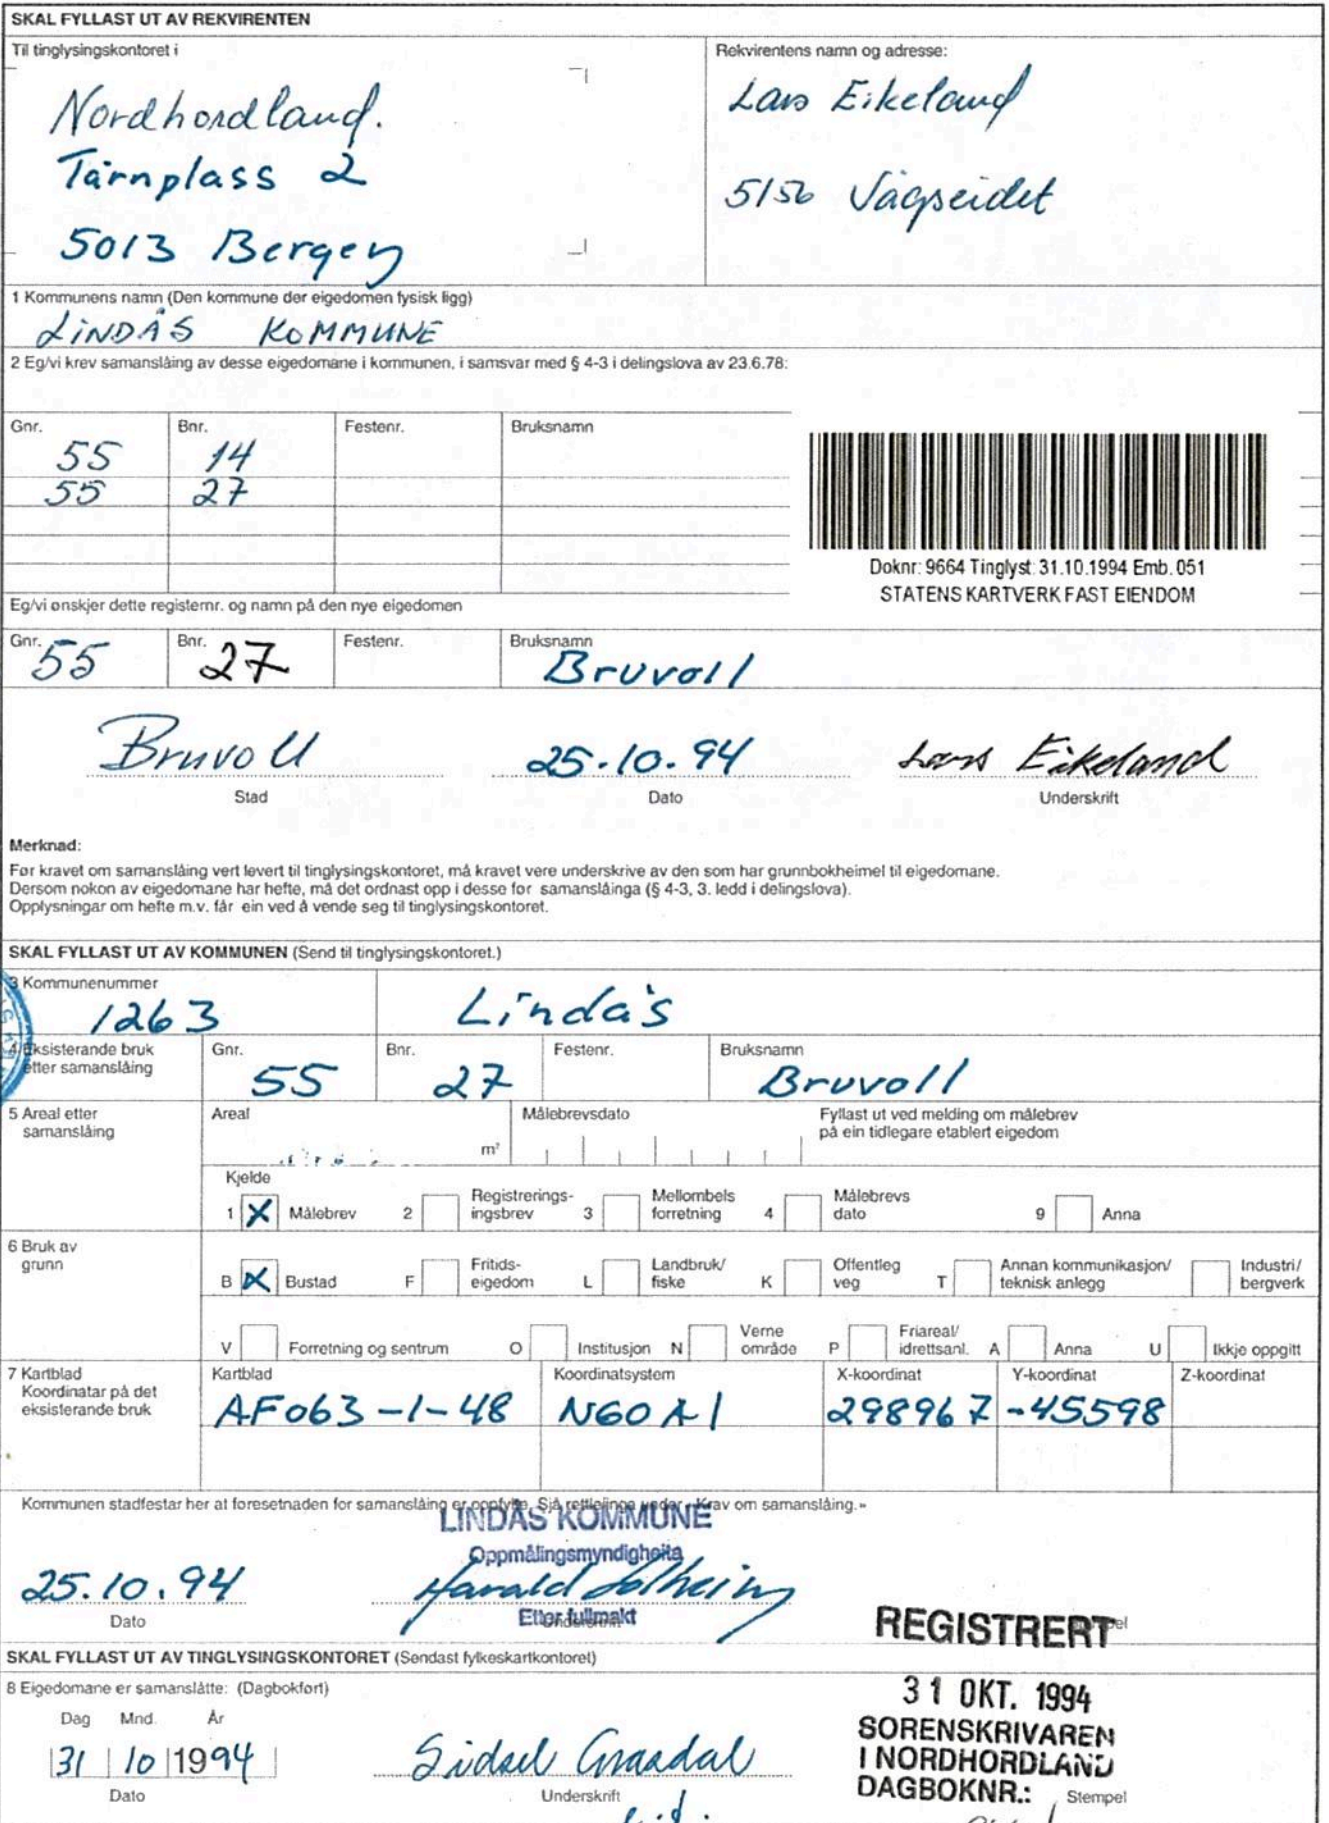 SKAL FYLLAST UT AV REKVIRENTEN
Til tinglysingskontoret i
Nordhordland.
Tårnplass 2
5013 Bergen
Rekvirentens namn og adresse:
Lars Eikeland
5156 Vågseidet
1 Kommunens namn (Den kommune der eigedomen fysisk ligg)
LINDÅS KOMMUNE
2 Eg/vi krev samanslåing av desse eigedomane i kommunen, i samsvar med § 4-3 i delingslova av 23.6.78:
Gnr. Bnr. Festenr. Bruksnamn
55 14
55 27
Doknr: 9664 Tinglyst: 31.10.1994 Emb. 051
STATENS KARTVERK FAST EIENDOM
Eg/vi ønskjer dette registernr. og namn på den nye eigedomen
Gnr. Bnr. Festenr. Bruksnamn
55 27 Bruvoll
Bruvoll 25.10.94 Lars Eikeland
Stad Dato Underskrift
Merknad:
Før kravet om samanslåing vert levert til tinglysingskontoret, må kravet vere underskrive av den som har grunnbokheimel til eigedomane.
Dersom nokon av eigedomane har hefte, må det ordnast opp i desse før samanslåinga (§ 4-3, 3. ledd i delingslova).
Opplysningar om hefte m.v. får ein ved å vende seg til tinglysingskontoret.
SKAL FYLLAST UT AV KOMMUNEN (Send til tinglysingskontoret.)
3 Kommunenummer
1263 Lindås
4 Eksisterande bruk etter samanslåing
Gnr. Bnr. Festenr. Bruksnamn
55 27 Bruvoll
5 Areal etter samanslåing
Areal m²
Målebrevsdato
Fyllast ut ved melding om målebrev
på ein tidlegare etablert eigedom
Kjelde
1 X Målebrev 2 Registrerings-ingsbrev 3 Mellombels forretning 4 Målebrevs dato 9 Anna
6 Bruk av grunn
B X Bustad F Fritids-eigedom L Landbruk/fiske K Offentleg veg T Annan kommunikasjon/teknisk anlegg Industri/bergverk
V Forretning og sentrum O Institusjon N Verne område P Friareal/idrettsanl. A Anna U Ikkje oppgitt
7 Kartblad
Koordinatar på det
eksisterande bruk
Kartblad Koordinatsystem X-koordinat Y-koordinat Z-koordinat
AF063-1-48 NGO A1 298967 -45598
Kommunen stadfestar her at føresetnaden for samanslåing er oppfylte. Sjå rettleiinga under «Krav om samanslåing.»
LINDÅS KOMMUNE
Oppmålingsmyndigheita
25.10.94 Harald Solheim
Etter fullmakt
Dato
REGISTRERT
SKAL FYLLAST UT AV TINGLYSINGSKONTORET (Sendast fylkeskartkontoret)
8 Eigedomane er samanslåtte: (Dagbokført)
Dag Mnd. År
31 10 1994
Dato
Sidsel Graadal
Underskrift
31 OKT. 1994
SORENSKRIVAREN
I NORDHORDLAND
DAGBOKNR.:
Stempel